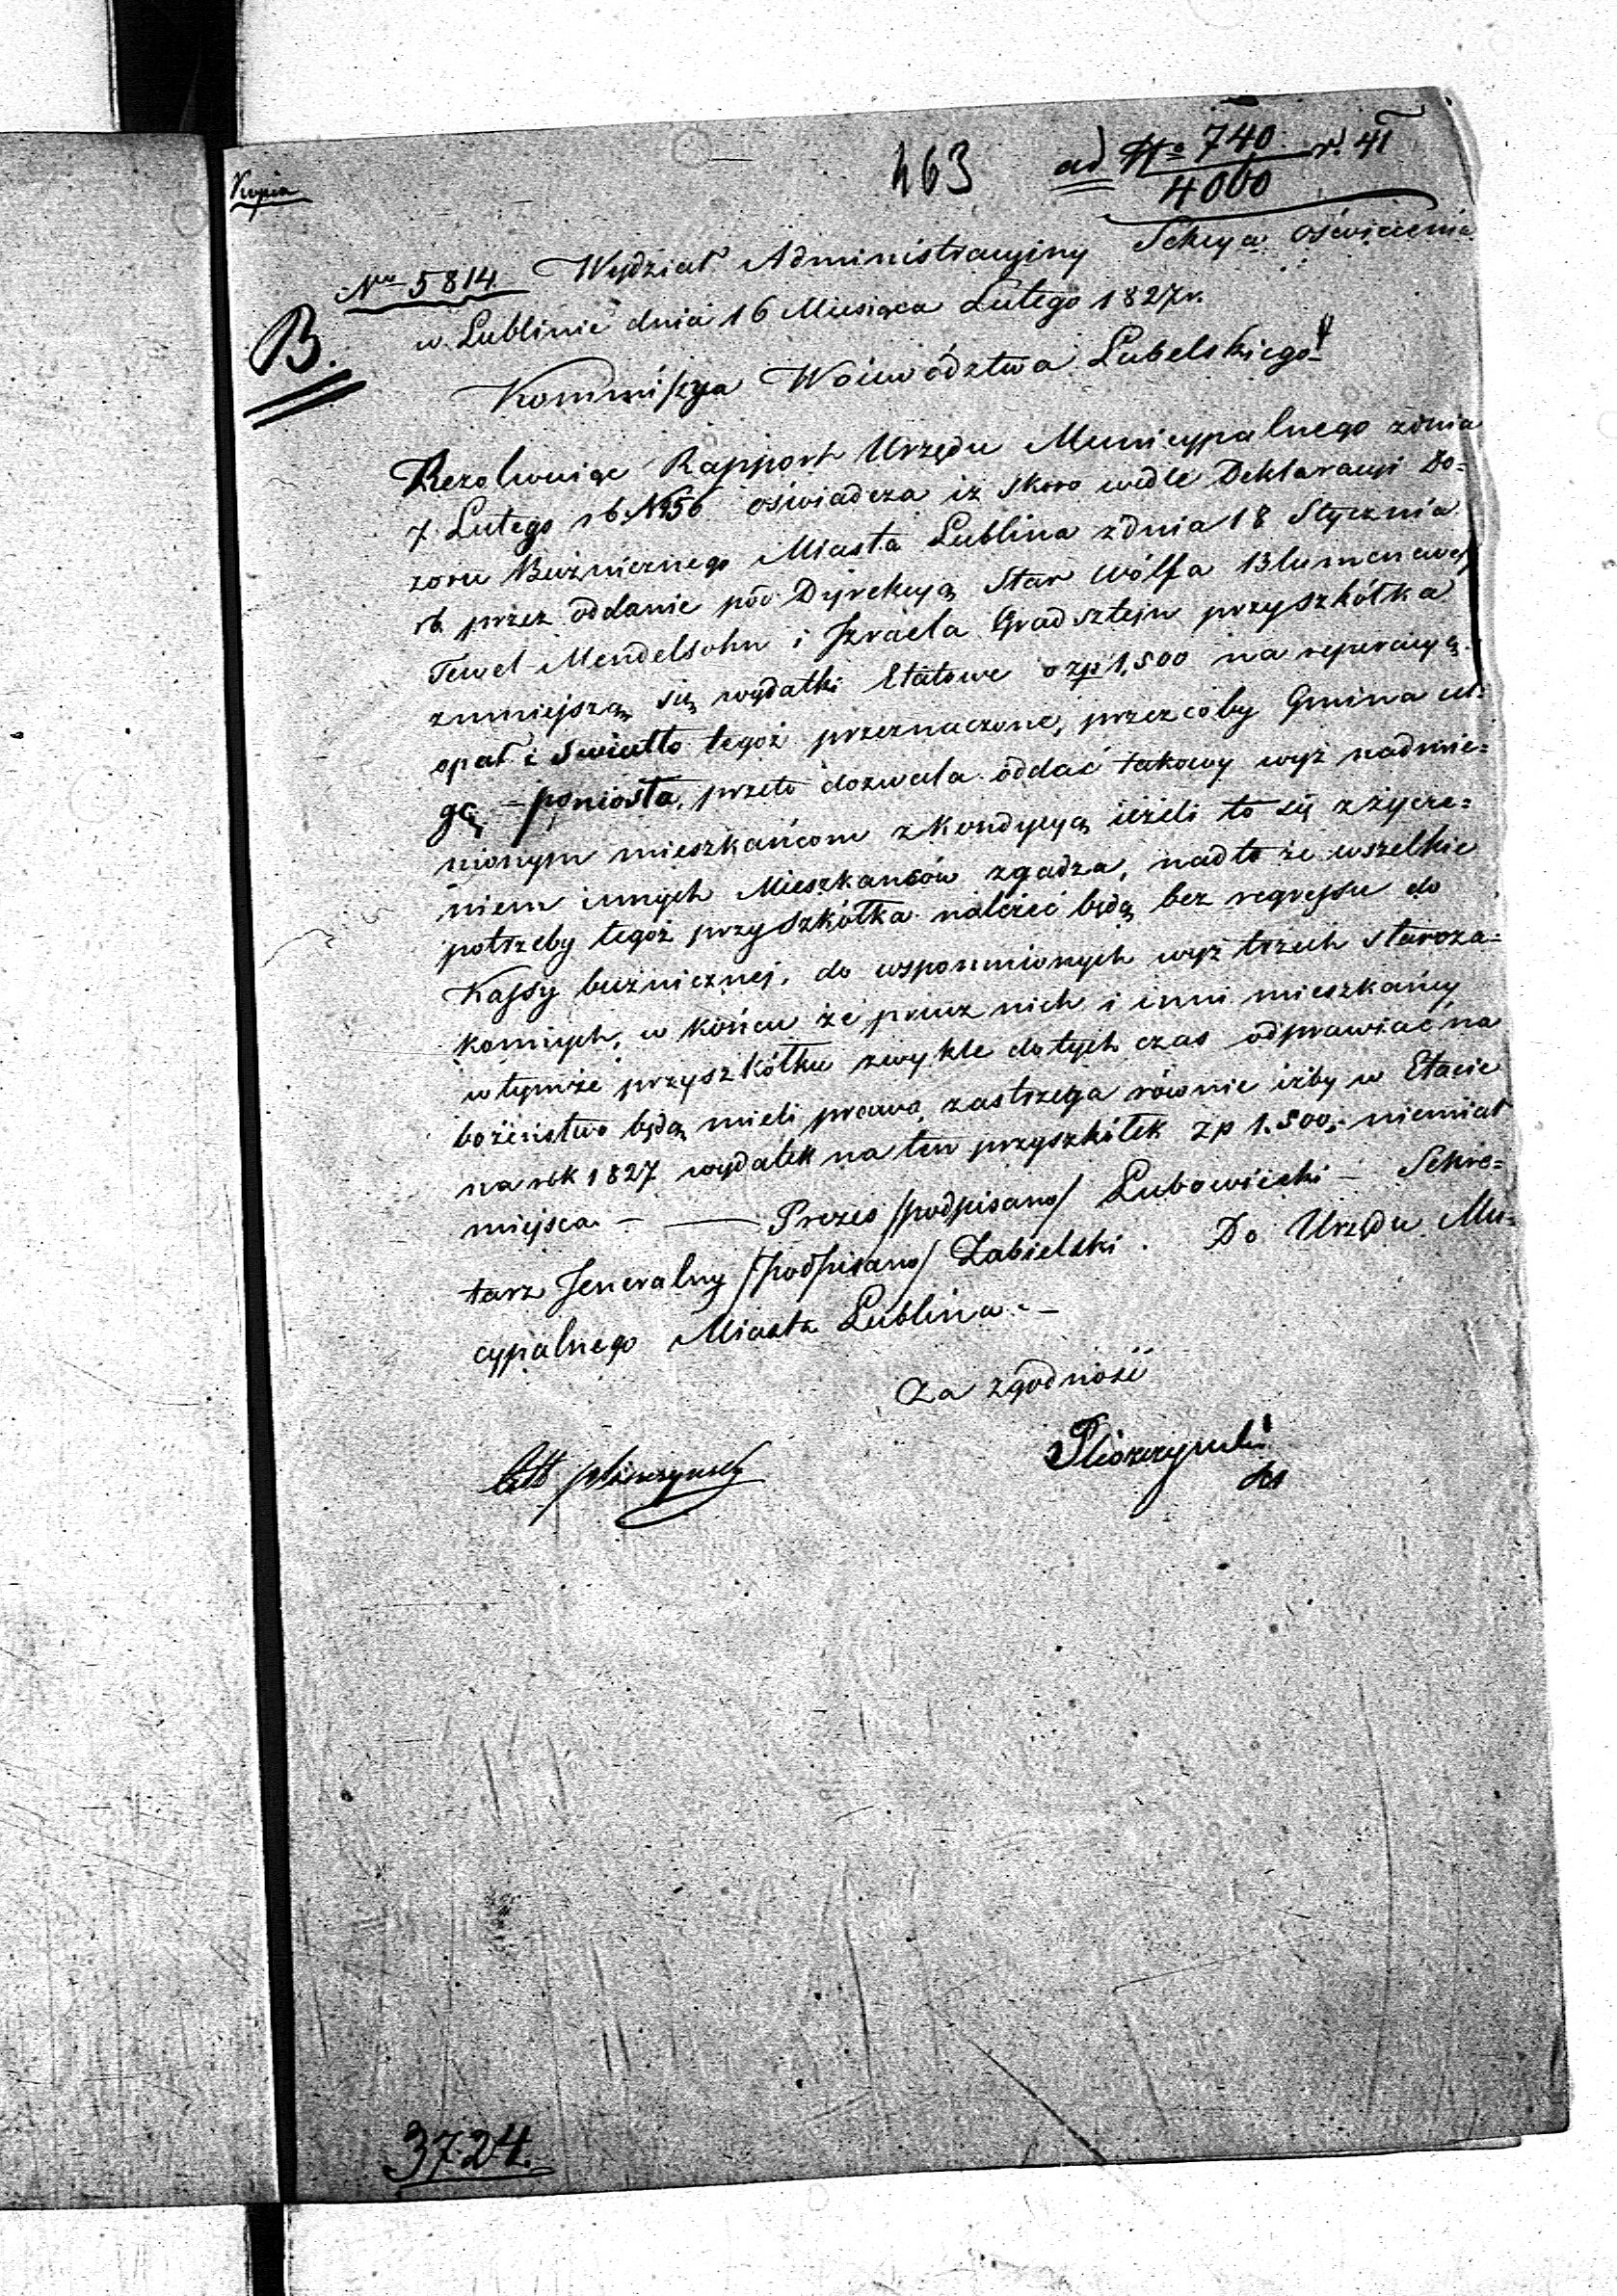 Kopia
463
ad No 740 r. 41
4000
No 5814. Wydział Administracyiny Sekcya oświecenia
w Lublinie dnia 16 Miesiąca Lutego 1827 r.
B.
Kommissya Woiewództwa Lubelskiego
Rezolwuiąc Rapport Urzędu Municypalnego z dnia
7 Lutego rb. No 56 oświadcza iż skoro wedle Deklaracyi Do=
zoru Bużnicznego Miasta Lublina z dnia 18 Stycznia
rb. przez oddanie pod Dyrekcyą Star Wólfa
Tewel Mendelsohn i Izraela Gradsztejn przyszkółka
zmnieyszą się wydatki Etatowe o zp 1,500 na reperacyą
opał i Swiatło tegoż przeznaczone, przezcoby Gmina ul=
gę – poniosła, przeto dozwala oddać takowy wyż nadmie=
nionym mieszkańcom z kondycyą ieżeli to się z życze=
niem innych Mieszkańców zgadza, nadto że wszelkie
potrzeby tegoż przyszkółka należeć będą bez regressu do
Kassy bużnicznej, do wspomnionych wyż trzech staroza=
konnych, w końcu że prucz nich i inni mieszkańcy
w tymże przyszkółku zwykle dotych czas odprawiać na
bożeństwo będą mieli prawo, zastrzega równie iżby w Etacie
na rok 1827 wydatek na ten przyszkółek zp 1.500,- niemiał
miejsca. – — Prezes /podpisano/ Lubowiecki – Sekre=
tarz Jeneralny /podpisano/ Zabielski. Do Urzędu Mu=
cypalnego Miasta Lublina. –
Za zgodność
3724.